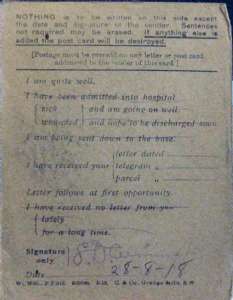 NOTHING is to be written on this side except
the date and signature of the sender. Sentences
not required may be erased. If anything else is
added the post card will be destroyed.
[Postage must be prepaid on any letter or post card
addressed to the sender of this card.]
I am quite well.
I have been admitted into hospital
sick and am going on well.
wounded and hope to be discharged soon.
I am being sent down to the base.
letter dated
I have received your telegram „
parcel „
Letter follows at first opportunity.
I have received no letter from you
lately
for a long time.
Signature
only
Date 28-8-18